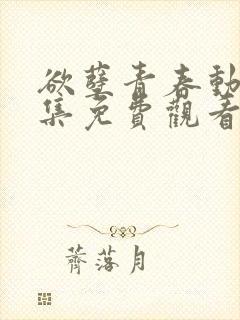 欲孽青春動
集免費觀看
薺落月